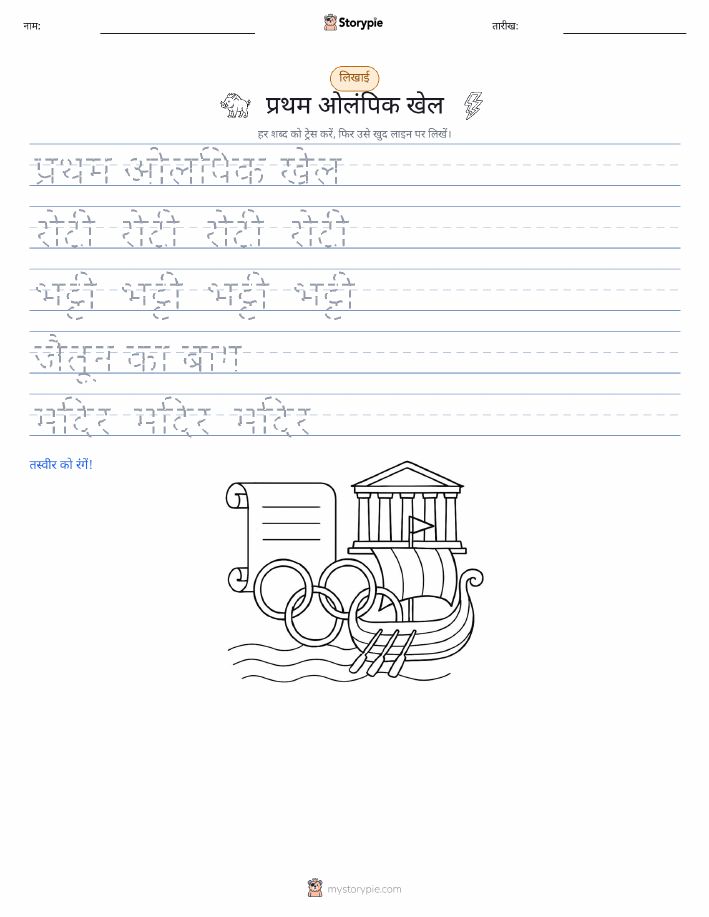 नाम:
Storypie
तारीख:
लिखाई
प्रथम ओलंपिक खेल
हर शब्द को ट्रेस करें, फिर उसे खुद लाइन पर लिखें।
प्रथम ओलंपिक खेल
रोटी रोटी रोटी रोटी
भट्टी भट्टी भट्टी भट्टी
जैतून का बाग
मंदिर मंदिर मंदिर
तस्वीर को रंगें!
mystorypie.com